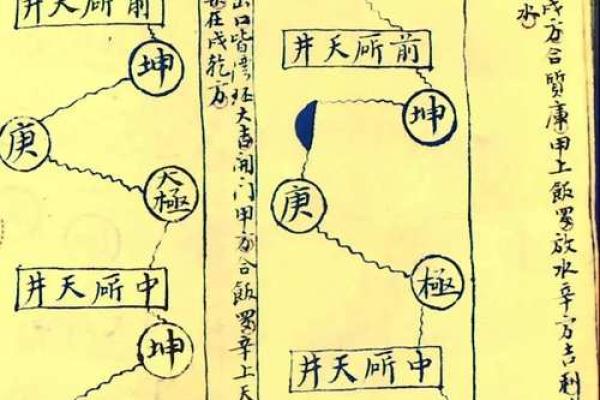 戌方合質庫甲上飯放水辛方吉利
水
前厛天井
坤
庚
極
中厛天井
出口皆灣环大吉開门甲方合飯辛上天
在戌乾方
前厛天井
坤
庚
太極
中厛天井
坤